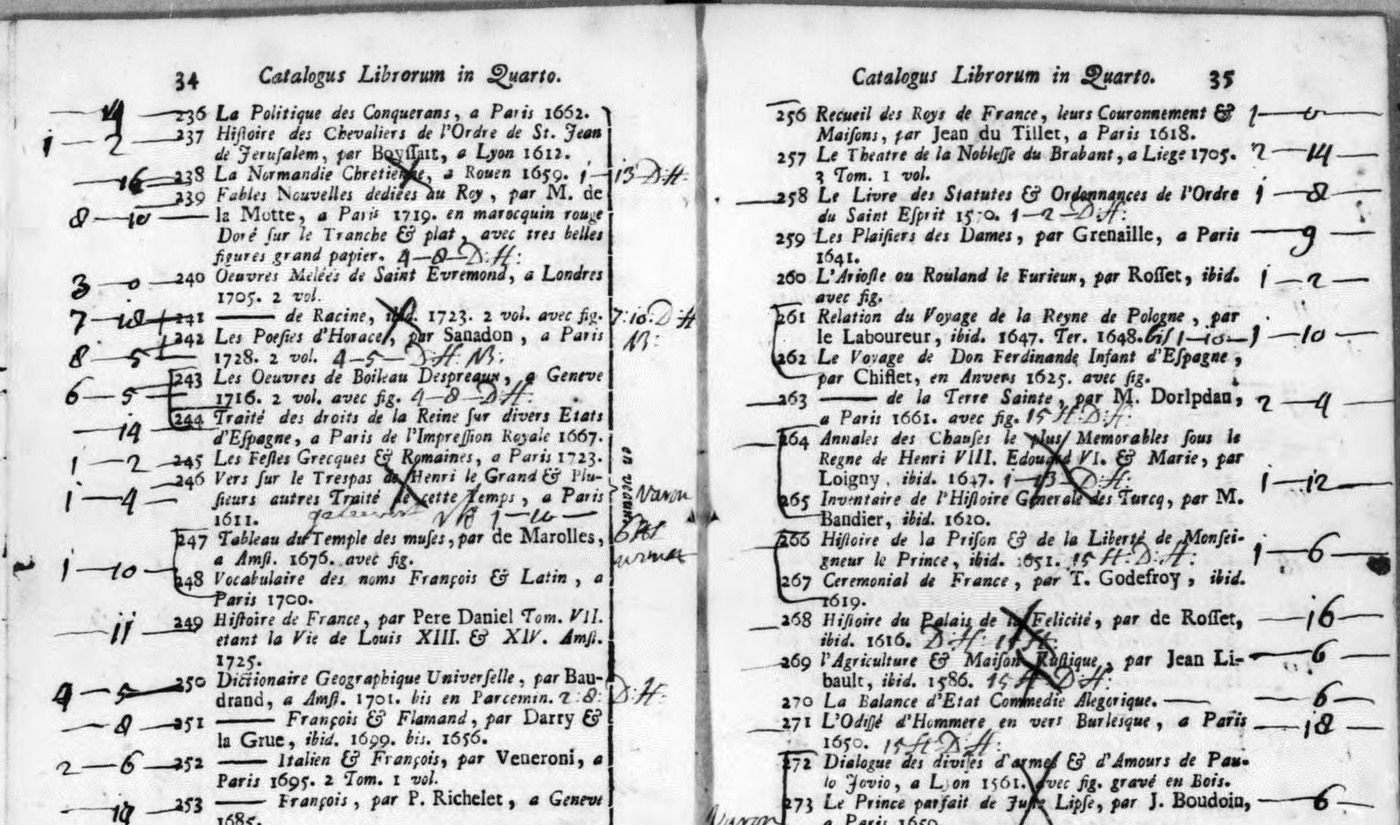 34 Catalogus Librorum in Quarto.
— 4 — 236 La Politique des Conquerans, a Paris 1662.
1 — 2 — 237 Histoire des Chevaliers de l'Ordre de St. Jean
de Jerusalem, par Boyssait, a Lyon 1612.
— 16 — 238 La Normandie Chretienne, a Rouen 1659. 1—13 D:H:
239 Fables Nouvelles dediées au Roy, par M. de
8 — 10 — la Motte, a Paris 1719. en marocquin rouge
Doré sur le Tranche & plat, avec tres belles
figures grand papier. 4—8—D:H:
3 — 0 — 240 Oeuvres Melées de Saint Evremond, a Londres
1705. 2 vol.
7 — 18 — 241 —— de Racine, ibid. 1723. 2 vol. avec fig. 7:10:D:H
242 Les Poesies d'Horace, par Sanadon, a Paris NB:
8 — 5 — 1728. 2 vol. 4—5—D:H: NB:
243 Les Oeuvres de Boileau Despreaux, a Geneve
6 — 5 — 1716. 2 vol. avec fig. 4—8—D:H:
244 Traité des droits de la Reine sur divers Etats
— 14 — d'Espagne, a Paris de l'Impression Royale 1667.
1 — 2 — 245 Les Festes Grecques & Romaines, a Paris 1723.
246 Vers sur le Trespas de Henri le Grand & Plu-
1 — 4 — sieurs autres Traité de cette Temps, a Paris
1611. 1—10—
247 Tableau du Temple des muses, par de Marolles,
a Amst. 1676. avec fig.
1 — 10 — 248 Vocabulaire des noms François & Latin, a
Paris 1700.
249 Histoire de France, par Pere Daniel Tom. VII.
— 11 — etant la Vie de Louis XIII. & XIV. Amst.
1725.
250 Dictionaire Geographique Universelle, par Bau-
4 — 5 — drand, a Amst. 1701. bis en Parcemin. 2:8: D:H:
— 8 — 251 —— François & Flamand, par Darry &
la Grue, ibid. 1699. bis. 1656.
2 — 6 — 252 —— Italien & François, par Veneroni, a
Paris 1695. 2 Tom. 1 vol.
253 —— François, par P. Richelet, a Geneve
1685.
en veaux
Catalogus Librorum in Quarto. 35
256 Recueil des Roys de France, leurs Couronnement & 1 — 0 —
Maisons, par Jean du Tillet, a Paris 1618.
257 Le Theatre de la Noblesse du Brabant, a Liege 1705. 2 — 14 —
3 Tom. 1 vol.
258 Le Livre des Statutes & Ordonnances de l'Ordre 1 — 8 —
du Saint Esprit 1570. 1—2—D:H:
259 Les Plaisiers des Dames, par Grenaille, a Paris — 9 —
1641.
260 L'Arioste ou Rouland le Furieux, par Rosset, ibid. 1 — 2 —
avec fig.
261 Relation du Voyage de la Reyne de Pologne, par
le Laboureur, ibid. 1647. Ter. 1648. bis 1—10— 1 — 10 —
262 Le Voyage de Don Ferdinande Infant d'Espagne,
par Chiflet, en Anvers 1625. avec fig.
263 —— de la Terre Sainte, par M. Dorlpdan, 2 — 4 —
a Paris 1661. avec fig. 15 St. D:H:
264 Annales des Chauses le plus Memorables sous le
Regne de Henri VIII. Edouard VI. & Marie, par
Loigny, ibid. 1647. 1—13—D:H: 1 — 12 —
265 Inventaire de l'Histoire Generale des Turcq, par M.
Bandier, ibid. 1620.
266 Histoire de la Prison & de la Liberté de Monsei-
gneur le Prince, ibid. 1651. 15 St. D:H: 1 — 6 —
267 Ceremonial de France, par T. Godefroy, ibid.
1619.
268 Histoire du Palais de la Felicité, par de Rosset, — 16 —
ibid. 1616. D:H:
269 l'Agriculture & Maison Rustique, par Jean Li- — 6 —
bault, ibid. 1586. 15 St D:H:
270 La Balance d'Etat Commedie Alegorique. — 6 —
271 L'Odissé d'Hommere en vers Burlesque, a Paris — 18 —
1650. 15 St: D:H:
272 Dialogue des divises d'armes & d'Amours de Pau-
lo Jovio, a Lyon 1561. avec fig. gravé en Bois.
273 Le Prince parfait de Juste Lipse, par J. Boudoin, — 6 —
a Paris 1650.